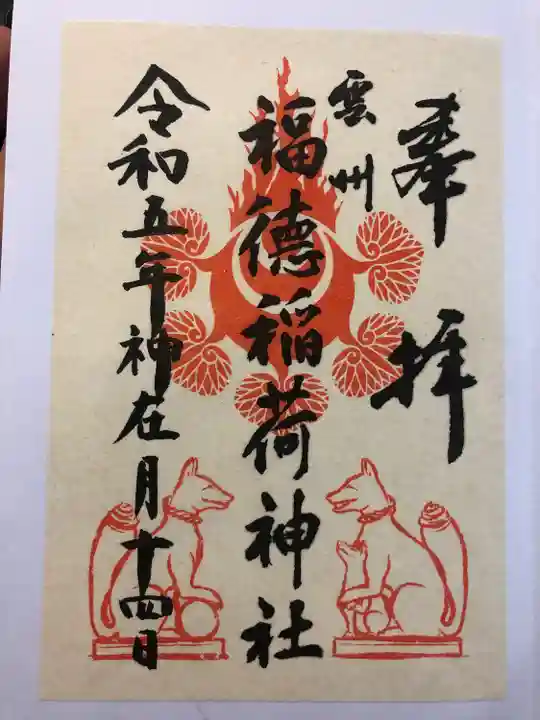 奉拝
雲州
福德稲荷神社
令和五年神在月十四日